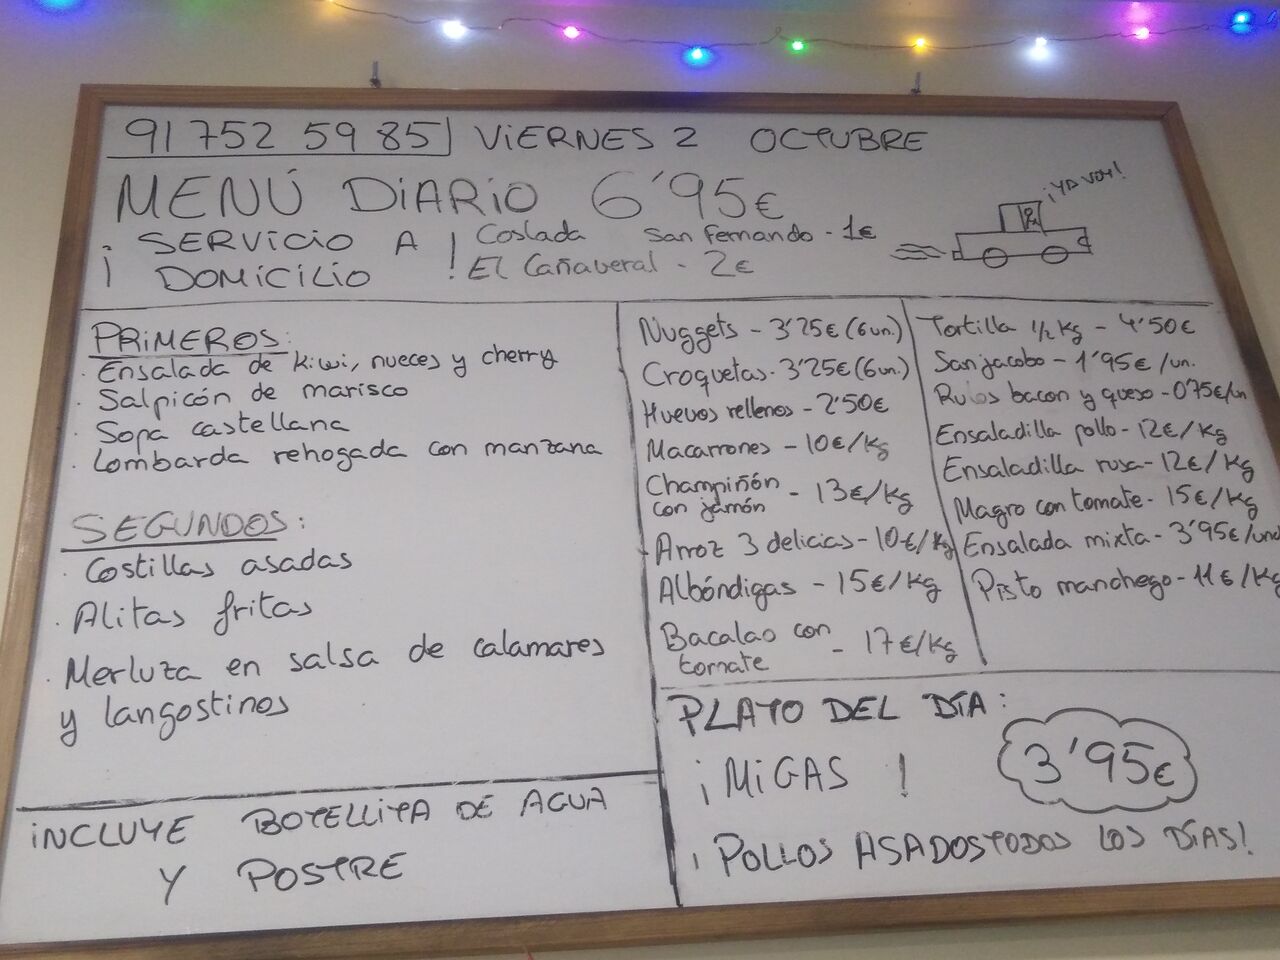 91 752 59 85 VIERNES 2 OCTUBRE
MENÚ DIARIO 6'95€
¡ SERVICIO A DOMICILIO !
Coslada San Fernando - 1€
El Cañaveral - 2€
¡YA VOY!
PRIMEROS:
· Ensalada de kiwi, nueces y cherry
· Salpicón de marisco
· Sopa castellana
· Lombarda rehogada con manzana
SEGUNDOS:
· Costillas asadas
· Alitas fritas
· Merluza en salsa de calamares
y langostinos
INCLUYE BOTELLITA DE AGUA
Y POSTRE
Nuggets - 3'25€ (6un.)
Croquetas - 3'25€ (6un.)
Huevos rellenos - 2'50€
Macarrones - 10€/Kg
Champiñón
con jamón - 13€/Kg
Arroz 3 delicias - 10€/Kg
Albóndigas - 15€/Kg
Bacalao con
tomate - 17€/Kg
Tortilla 1/2 Kg - 4'50€
Sanjacobo - 1'95€/un.
Rulos bacon y queso - 0'75€/un
Ensaladilla pollo - 12€/Kg
Ensaladilla rusa - 12€/Kg
Magro con tomate - 15€/Kg
Ensalada mixta - 3'95€/und
Pisto manchego - 11€/Kg
PLATO DEL DÍA:
¡MIGAS! 3'95€
¡POLLOS ASADOS TODOS LOS DÍAS!